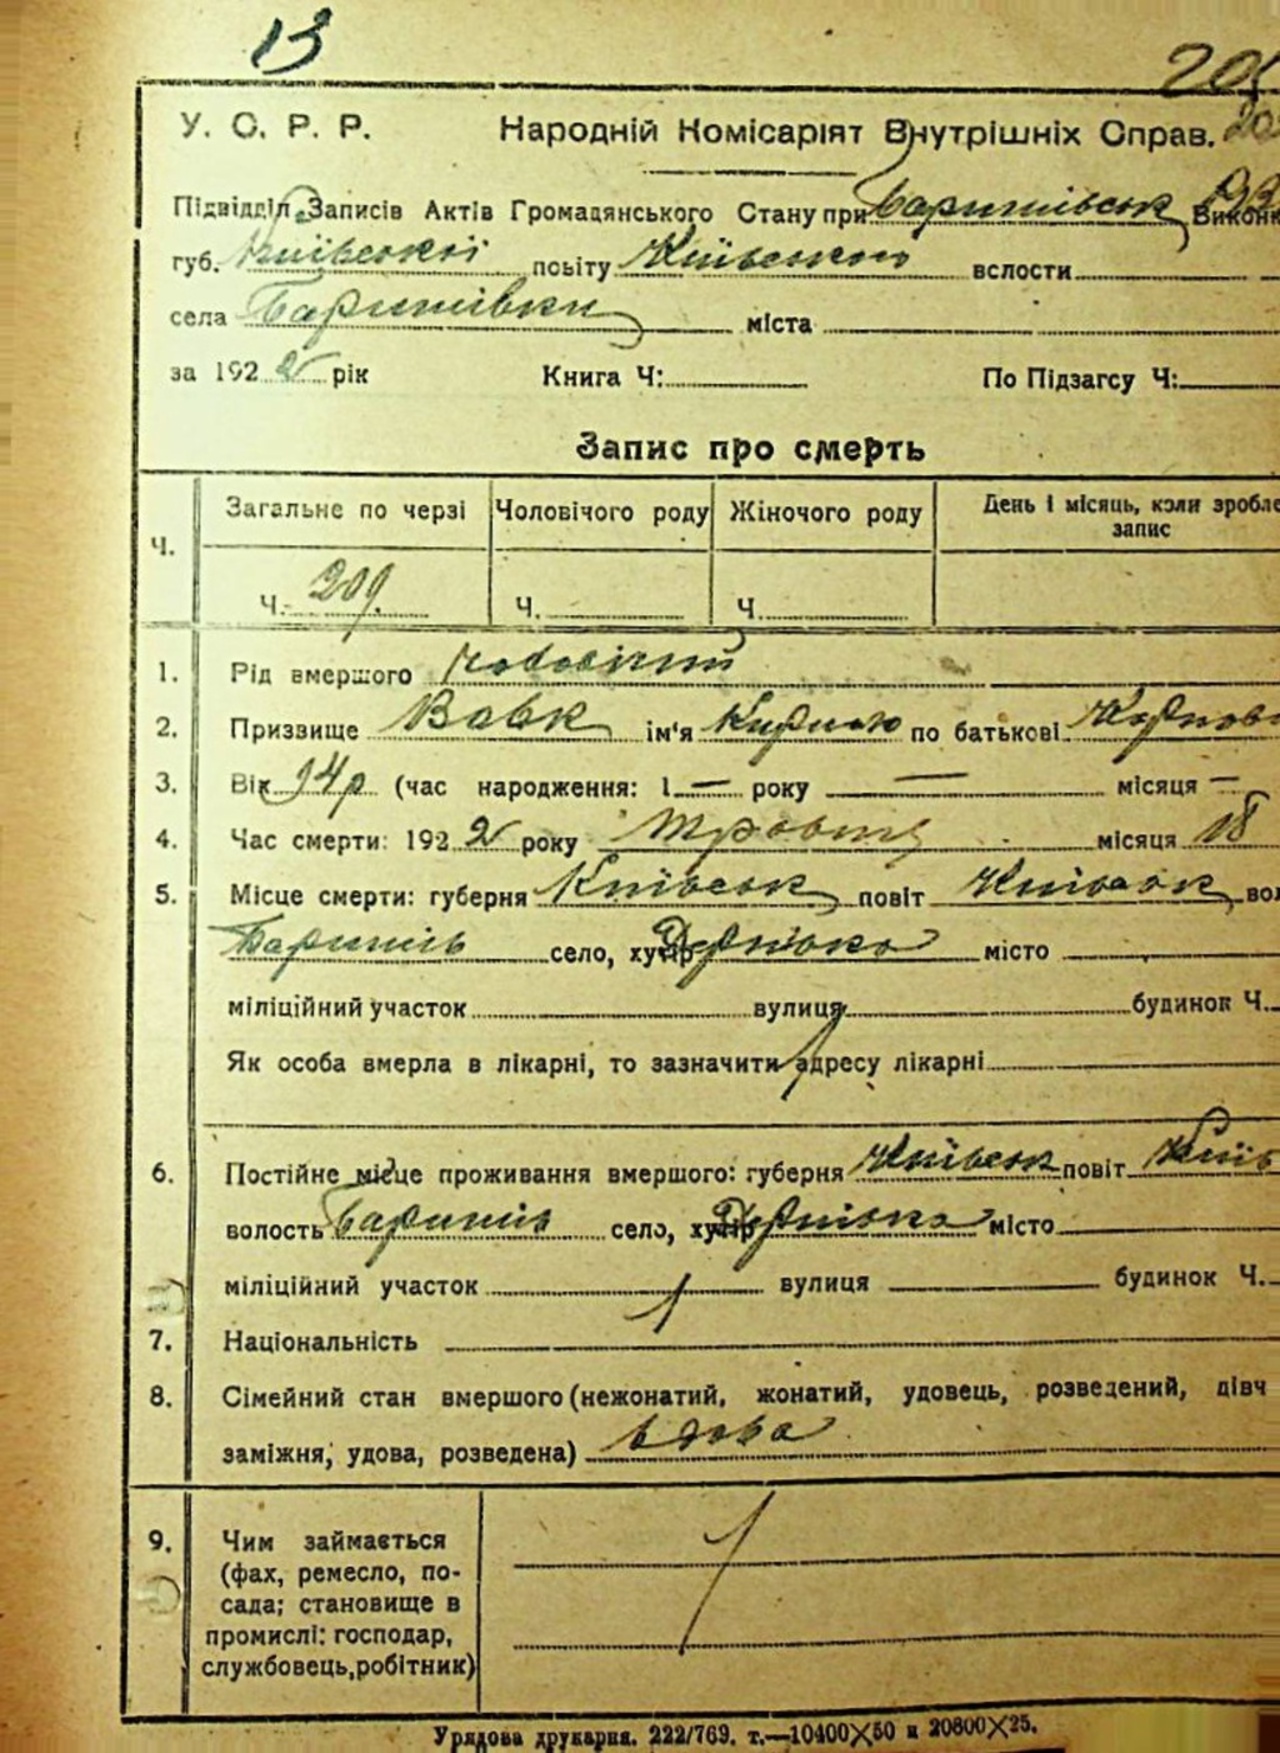 13
У. С. Р. Р. Народній Комісаріят Внутрішніх Справ.
Підвідділ Записів Актів Громадянського Стану при Баришівськ
губ. Київської повіту Київського вслости
села Баришівки міста
за 1922 рік Книга Ч: По Підзагсу Ч:
Запис про смерть
Загальне по черзі Чоловічого роду Жіночого роду День і місяць, коли зробле
запис
Ч.
Ч. 209. Ч. Ч.
1. Рід вмершого чоловічий
2. Призвище Вовк ім'я по батькові
3. Вік 94 р (час народження: 1 — року — місяця —
4. Час смерти: 1922 року травня місяця 18
5. Місце смерти: губерня Київськ повіт Київськ вол
Баришів село, хутір місто
міліційний участок вулиця будинок Ч.
Як особа вмерла в лікарні, то зазначити адресу лікарні
6. Постійне місце проживання вмершого: губерня Київськ повіт Київ
волость Баришів село, хутір місто
міліційний участок вулиця будинок Ч.
7. Національність
8. Сімейний стан вмершого (нежонатий, жонатий, удовець, розведений, дівч
заміжня, удова, розведена) вдова
9. Чим займається
(фах, ремесло, по-
сада; становище в
промислі: господар,
службовець, робітник)
Урядова друкарня. 222/769. т.—10400×50 и 20800×25.